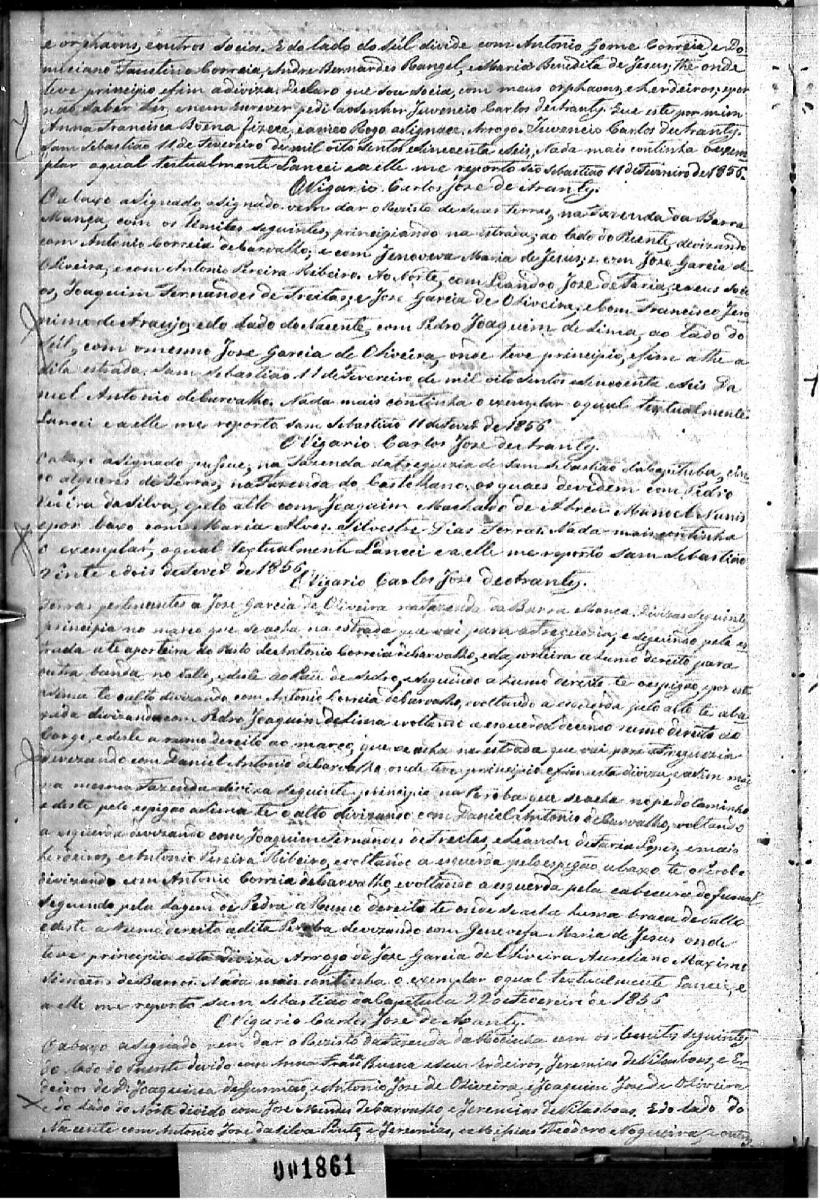 e orphaons, e outros socios. E do lado do Sul divide com Antonio Gome Correia e Do
miciano Faustino Correia, Andre Bernardes Rangel, e Maria Benedite de Jesus, the onde
teve principio e fim a diviza. Declaro que sou socia, com meus orphaons, e herdeiros, e por
nao saber ler, e nem escrever pedi ao Senhor Juvencio Carlos de Aranty. Que este por mim
Anna Francisca Boena fizece, e a meo Rogo asignace. Arrogo, Juvencio Carlos de Aranty.
Sam Sebastiao 11 de Fevereiro de mil oito sentos e sincoenta e seis, Nada mais continha o exem
plar oqual textualmente Lancei e a elle me reporto São Sebastiao 11 de Fevereiro de 1856.
O Vigario. Carlos José de Aranty.
O abaxo asignado asignado. vem dar o Rezisto de Seuas terras, na Fazenda da Barra
Mança, com os limites seguintes, principiando na estrada; ao lado do Puente, devizando
com Antonio Correia de Carvalho; e com Jenoveva Maria de Jesus; e com Jose Garcia de
Oliveira, e com Antonio Pereira Ribeiro. Ao Norte, com Leandro José de Faria, e seus Soci
os, Joaquim Fernandes de Freitas, e Jose Garcia de Oliveira, e com Francisco Jero
nimo de Araujo, e do Lado do Nacente, com Pedro Joaquem de Lima, ao lado do
Sul, com o mesmo Jose Garcia de Oliveira, onde teve principio, e fim athe a
dita estrada. Sam Sebastiao 11 de Fevereiro de mil oito sentos e sincoenta e seis Da
niel Antonio de Carvalho. Nada mais continha o exemplar oqual textualmente
Lancei e a elle me reporto Sam Sebastiao 11 de Fevr. de 1856
O Vigario. Carlos Jose de Aranty.
O abaxo asignado pusue, na Fazenda da Freguezia de Sam Sebastiao da Capituba, cin
co alqueres de terras, na Fazenda do Castelhano, os quaes devedem com Pedro
Vieira da Silva, e pelo alto com Joaquim Machado de Abreu Manoel Nunis
e por baxo com Maria Alves. Silvestre Dias Ferras. Nada mais continha
o exemplar, oqual textualmente Lancei e a elle me reporto Sam Sebastiao
vinte e dois de Fever. de 1856
O Vigario Carlos Jose de Aranty.
Terras pertencentes a Jose Garcia de Oliveira na Fazenda da Barra Manca. Divizas seguintes
principia no marco que se acha na estrada que vai para a freguezia, e seguindo pela es
trada ate aporteira do Pasto de Antonio Correia de Carvalho, e da porteira a rumo dereito para
outra banda, no vallo, e deste ao de Pedro, e seguindo a rumo dereito te o espigão, e por este
asima te o alto divizando com Antonio Correia de Carvalho, e voltando a esquerda pelo alto te aba
xada divizando com Pedro Joaquim de Lima e voltando a esquerda decendo rumo direito ao
e deste a rumo dereito ao março, que se acha na estrada que vai para a Freguezia
devezando com Daniel Antonio de Carvalho onde teve principio e fim esta diviza, e asim mais
na mesma Fazenda diviza seguinte principia na Peroba que se acha no pe do Caminho
e deste pelo espigão asima te o alto divizando com Daniel Antonio de Carvalho, voltando
a esquerda divizando com Joaquim Fernandes de Freitas, e Leandro de Faria Lopes, e mais
herdeiros, e Antonio Pereira Ribeiro, e voltando a esquerda pelo espigão abaxo te
devizando com Antonio Correia de Carvalho, e voltando a esquerda pela cabeceira do
seguindo pela lagem de Pedra a Rumo dereito te onde se acha huma braca de Vallo
e deste a Rumo dereito a dita Peroba devezando com Genevefa Maria de Jesus onde
teve principio esta diviza Arrogo de Jose Garcia de Oliveira Aureliano Maximi
Simoens de Barros. Nada mais continha o exemplar oqual textualmente Lancei, e
a elle me reporto Sam Sebastiao da Capetuba 22 de Fevereiro de 1856
O Vigario Carlos Jose de Aranty.
O abaxo asignado vem dar o Rezisto da Fazenda da Rocinha com os limites seguintes
do lado do Puente devido com Anna Franca Buena e seus Erdeiros, Jeremias de Vilasboas, e Er
deiros de D. Joaquina de Gusmão, e Antonio Jose de Oliveira, e Joaquim Jose de Oliveira
e do lado do Norte divido com Jose Mendes de Carvalho, e Jeremias de Vilasboas. E do lado do
Nacente com Antonio Jose da Silva Pinto, e Jeremias, e Theodoro Nogueira, e outros
001861